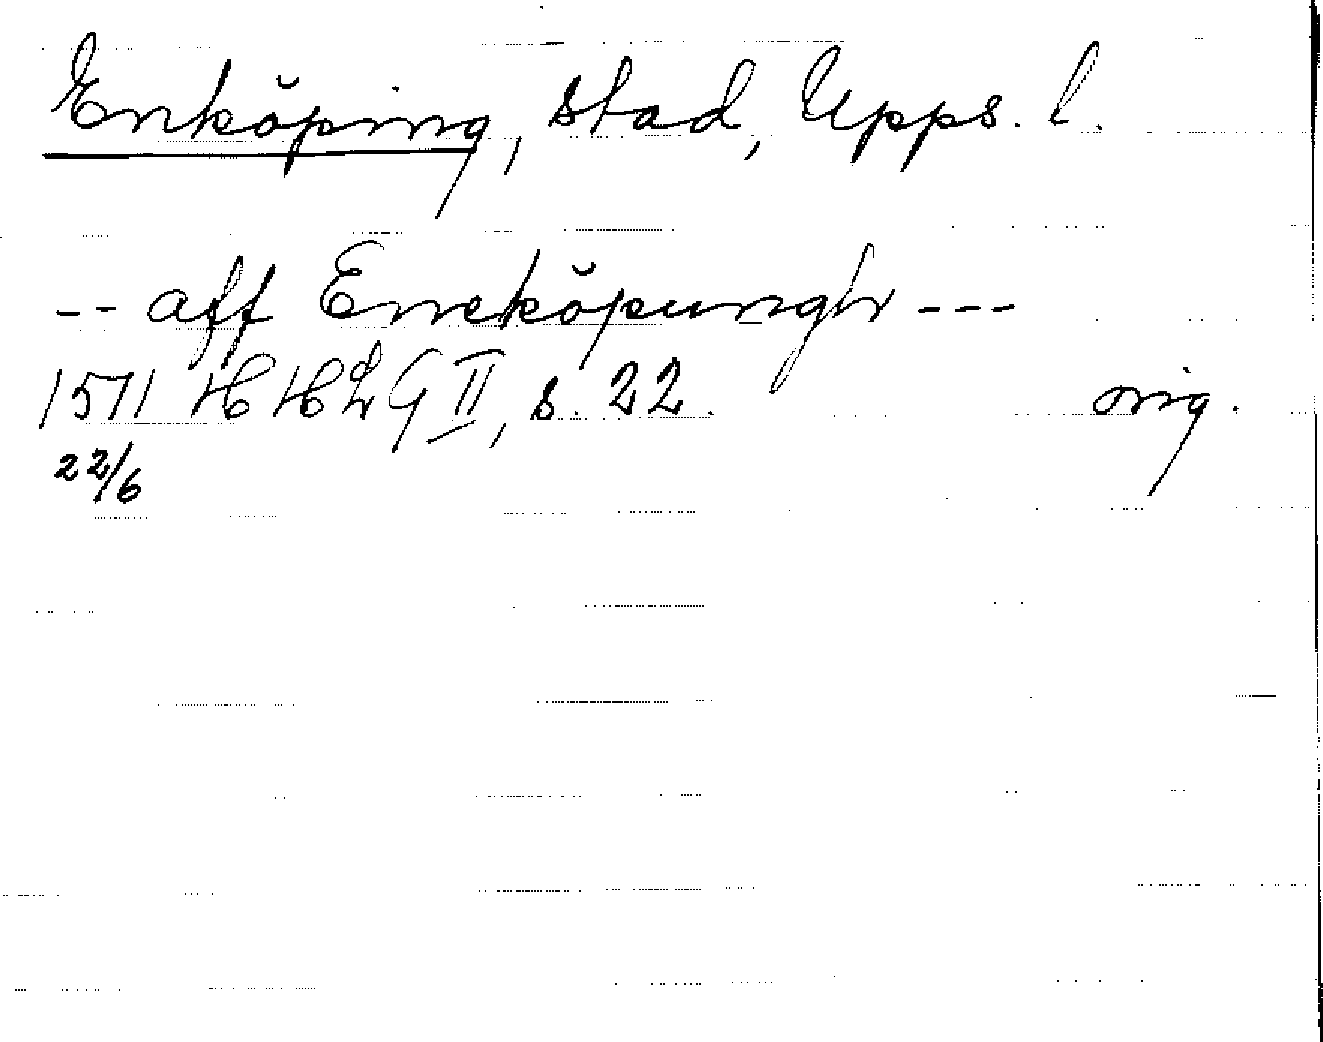 Enköping, stad, Upps. l.
-- aff Eneköpungh ---
1511 HHLG II, s. 22. orig.
22/6